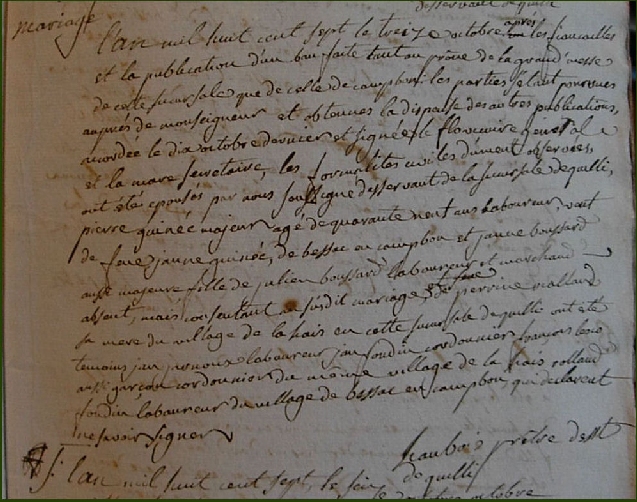 desservant de quilli
mariage
l'an mil huit cent sept le treize octobre après les fiançailles
et la publication d'un ban faite tant au prône de la grand'messe
de cette succursale que de celle de campbon les parties s'étant pourvues
auprès de monseigneur et obtenues la dispense des autres publications,
accordée le dix octobre dernier et signée général
et la mare secretaire, les formalités civiles dûment observées,
ont été épousés par nous soussigné desservant de la succursale de quilli,
pierre guinée majeur agé de quarante neuf ans laboureur, veuf
de feue jeanne guinée, de bessac en campbon et jeanne boussard
aussi majeure fille de julien boussard laboureur et marchand
absent, mais consentant au susdit mariage et de perrine rialland
sa mere du village de la hais en cette succursale de quilli ont été
temoins jan laboureur jan foudin cordonnier françois
aussi garçon cordonnier du même village de la hais rolland
foudin laboureur du village de bessac en campbon qui déclarent
ne savoir signer
prêtre dessert
de quilli
l'an mil huit cent sept, le
octobre